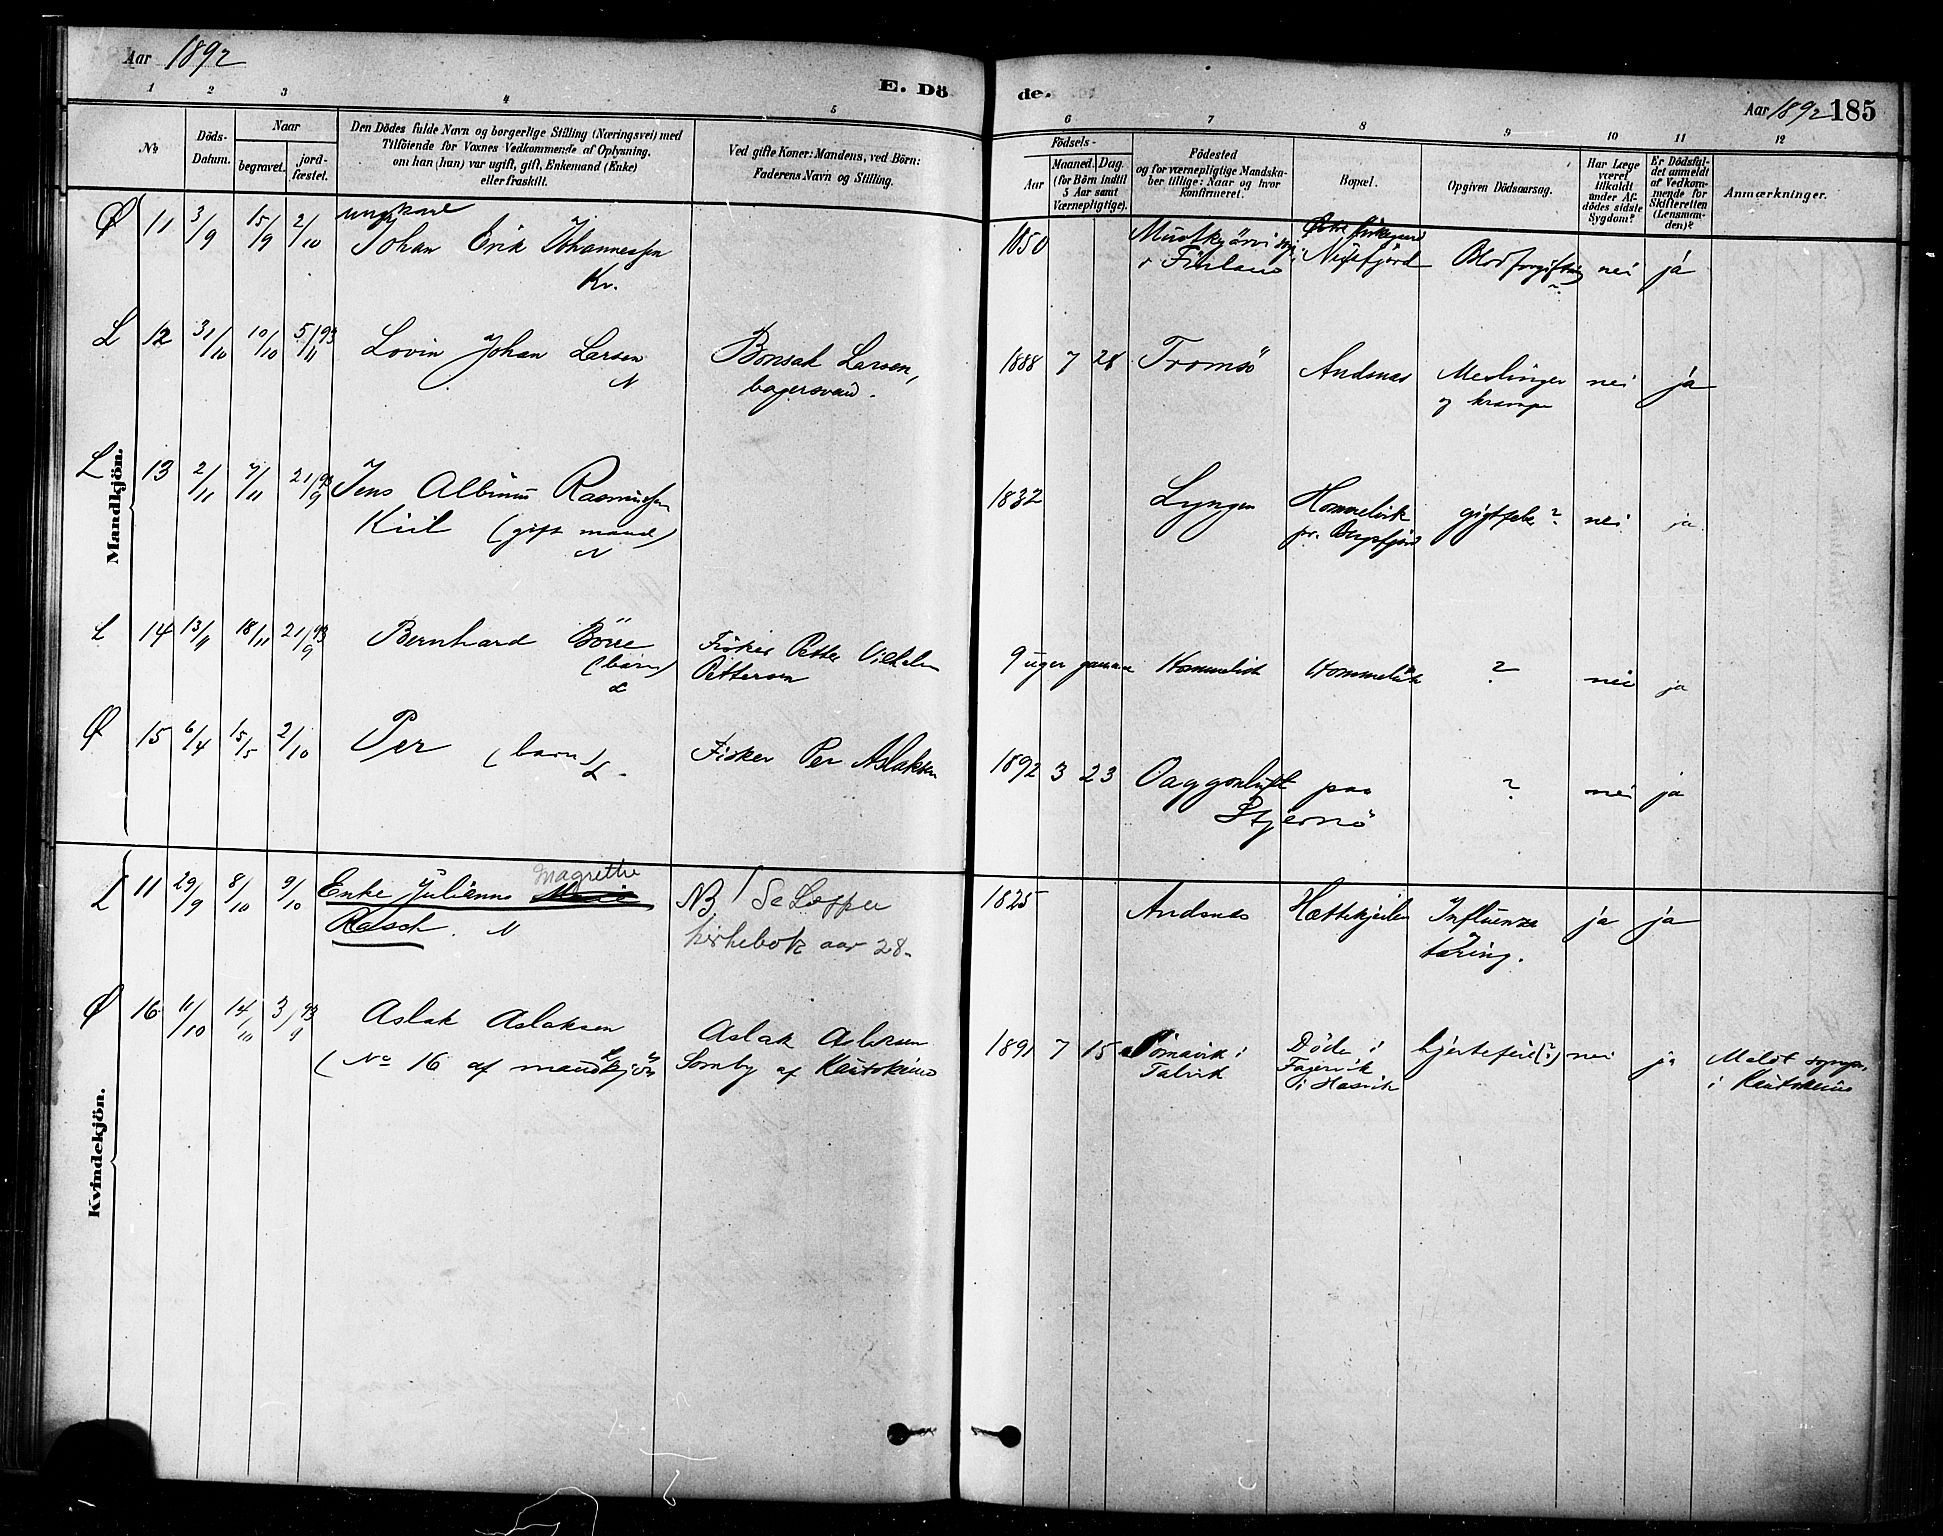 Aar 1892
E. Dö
de.
Aar 1892 185
1 2 3 4 5 6 7 8 9 10 11 12
No
Döds-Datum.
Naar
begravet.
jord-fæstet.
Den Dödes fulde Navn og borgerlige Stilling (Næringsvei) med
Tilföiende för Voxnes Vedkommende af Oplysning,
om han (hun) var ugift, gift, Enkemand (Enke)
eller fraskilt.
Ved gifte Koner: Mandens, ved Börn:
Faderens Navn og Stilling.
Födsels-
Aar
Maaned. Dag.
(for Börn indtil
5 Aar samt
Værnepligtige).
Födested
og for værnepligtige Mandska-
ber tillige: Naar og hvor
konfirmeret.
Bopæl.
Opgiven Dödsaarsag.
Har Læge
været
tilkaldt
under Af-
dödes sidste
Sygdom?
Er Dödsfal-
det anmeldt
af Vedkom-
mende for
Skifteretten
(Lensman-
den)?
Anmærkninger.
Mandkjön.
Ø 11 3/9 15/9 2/10 ungkarl
Johan Erik Johannessen
Kv.
1850 i Finland Blodforgiftning ? nei ja
L 12 31/10 10/10 5/11 93 Lovin Johan Larsen
N
Bonsak Larsen,
bagersvend.
1888 7 28 Tromsö Andsnæs Meslinger nei ja
og krampe
L 13 2/11 7/11 21/9 93 Jens Albinus Rasmussen
Kiil (gift mand)
N
1832 Lyngen Hommelvik gigtfeber? nei ja
pr. Bergsfjord
L 14 13/11 18/11 21/9 93 Bernhard Böre
(barn)
L
Fisker Petter Vilhelm
Pettersen
9 uger gammel Hommelvik Hommelvik ? nei ja
Ø 15 6/4 15/5 2/10 Per (barn) L.
Fisker Per Aslaksen
1892 3 23 paa
Stjernö ? nei ja
Kvindekjön.
L 11 29/9 8/10 9/10 Enke Julianna Magrethe
Rasch. N
NB! Se Loppa
kirkebok aar 28.
1825 Andsnæs Hættekjeilen Influenza ja ja
tæring.
Ø 16 11/10 14/10 3/9 93 Aslak Aslaksen
(No 16 af mandkjön
Aslak Aslaksen
Somby af Kautokeino
1891 7 15 i
Talvik
Döde i
Fagervik
i Hasvik
hjertefeil(?) nei ja Meldt sognepr.
i Kautokeino